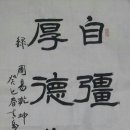 自彊
厚德
錄周易乾坤
癸巳春